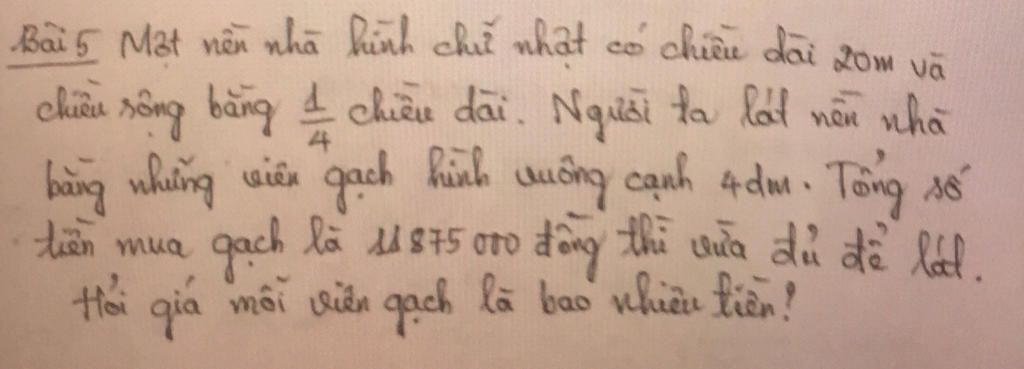 Bài 5 Một nền nhà hình chữ nhật có chiều dài 20m và
chiều rộng bằng 1/4 chiều dài. Người ta lát nền nhà
bằng những viên gạch hình vuông cạnh 4dm. Tổng số
tiền mua gạch là 11 875 000 đồng thì vừa đủ để lát.
Hỏi giá mỗi viên gạch là bao nhiêu tiền?